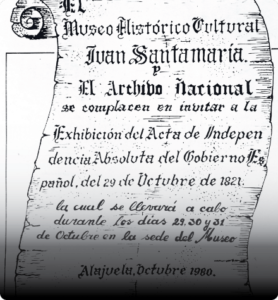 El
Museo Histórico Cultural
Juan Santamaría.
y
El Archivo Nacional
se complacen en invitar a la
Exhibición del Acta de Indepen
dencia Absoluta del Gobierno Es
pañol, del 29 de Octubre de 1821.
la cual se llevará a cabo
durante Los días 29, 30 y 31
de Octubre en la sede del Museo
Alajuela, Octubre 1980.